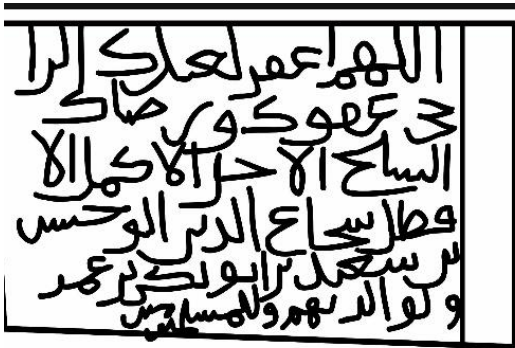 اللهم اغفر لعبدك الرا
جى عفوك ورضاك
الشيخ الأجل الأكمل الأ
فضل شجاع الدين ابو حسن
بن سعيد بن ابو بكر بن عمر
ولوالديهم وللمسلمين